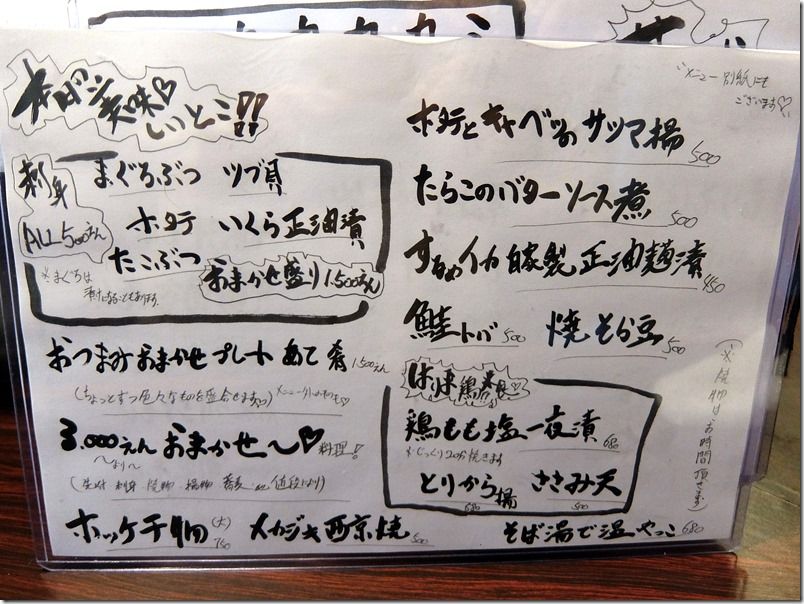 本日の美味しいとこ!!
刺身
ALL500えん
まぐろぶつ ツブ貝
ホタテ いくら正油漬
たこぶつ
おまかせ盛り1.500えん
※まぐろは
おつまみおまかせプレート あて肴 1.500えん
(ちょっとずつ色々なものを盛合せます♡)
3.000えん おまかせ〜♡料理!!
〜より〜
ホッケ干物(大) 750
メカジキ西京焼 500
メニュー別紙にも
ございます♡
ホタテとキャベツのサツマ揚 500
たらこのバターソース煮 500
するめイカ自家製正油麹漬 450
鮭トバ 500 焼そら豆 500
鶏もも塩一夜漬 680
※じっくり20分焼きます
とりから揚 680 ささみ天 500
そば湯で温やっこ 680
(※焼物はお時間頂きます)